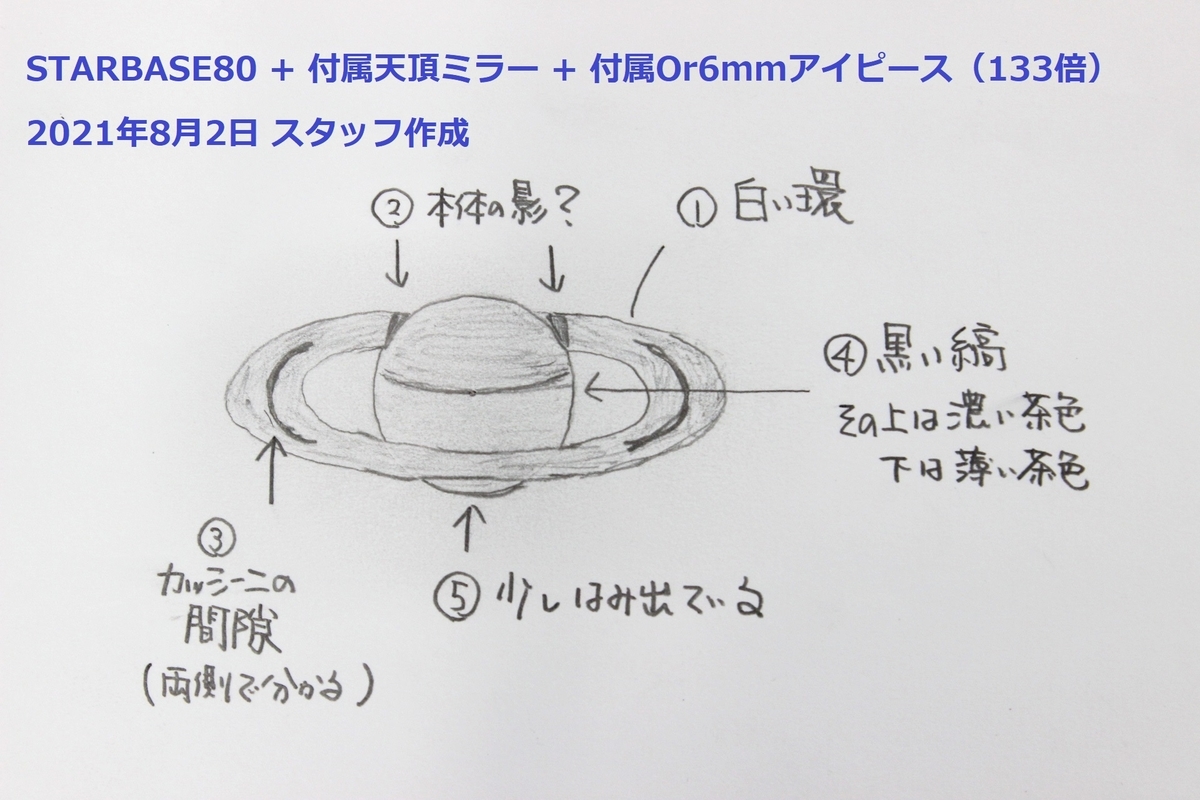 STARBASE80 + 付属天頂ミラー + 付属Or6mmアイピース（133倍）
2021年8月2日 スタッフ作成
② 本体の影？
① 白い環
④ 黒い縞
その上は濃い茶色
下は薄い茶色
③
カッシーニの
間隙
(両側で分かる)
⑤ 少しはみ出ている